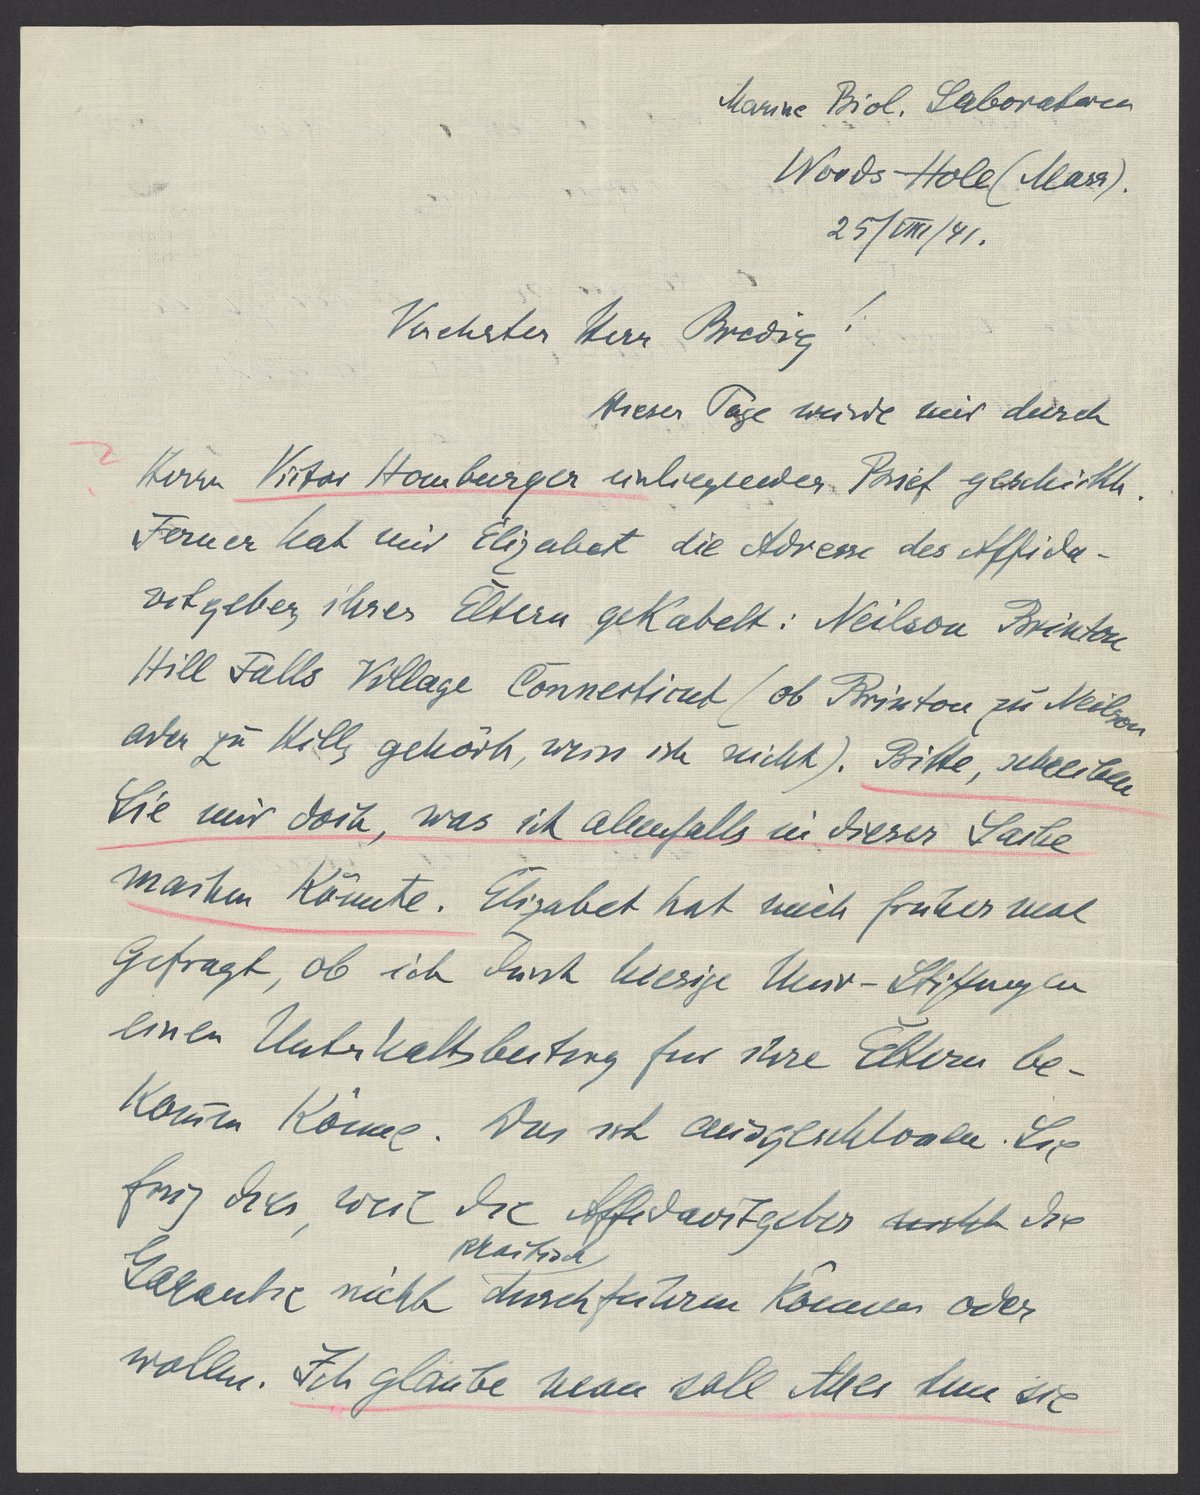 Marine Biol. Laboratorium
Woods-Hole (Mass).
25/VIII/41.
Verehrter Herr Bredig!
dieser Tage wurde mir durch
Herrn Viktor Homburger einliegender Brief geschickt.
Ferner hat mir Elizabet die Adresse des Affida-
vitgebers ihrer Eltern gekabelt: Neilson Brinton
Hill Falls Village Connecticut (ob Brinton zu Neilson
oder zu Hills gehört, weiss ich nicht). Bitte, schreiben
Sie mir doch, was ich allenfalls in dieser Sache
machen könnte. Elizabet hat mich früher mal
gefragt, ob ich durch hiesige Univ-Stiftungen
einen Unterhaltsbeitrag für ihre Eltern be-
komm könne. Das ist ausgeschlossen. Sie
frug dies, weil die Affidavitgeber nicht die
praktisch
Garantie nicht durchführen können oder
wollen. Ich glaube man soll Alles tun sie